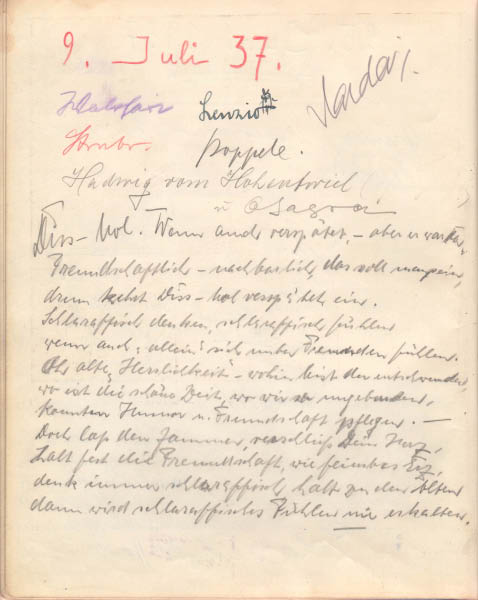 9. Juli 37.
Lenzio
Poppele.
Hadwig vom Hohentwiel
u
Diss-kol. Wenn auch verspätet, - aber es war
Freundschaftlich - nachbarlich, das soll man sein,
drum kehrt Diss-kol verspätet ein.
Schlaraffisch denken, schlaraffisch fühlen
wenn auch "allein" sich unter Fremden fühlen.
Oh alte Herrlichkeit - wohin bist du entschwunden,
wo ist die schöne Zeit, wo wir so ungebunden,
konnten Humor u. Freundschaft pflegen. -
Doch laß den Jammer, verschließ Dein Herz,
halt fest die Freundschaft, wie
denk immer schlaraffisch, halt zu den Alten
dann wird schlaraffisches Fühlen nie erkalten.